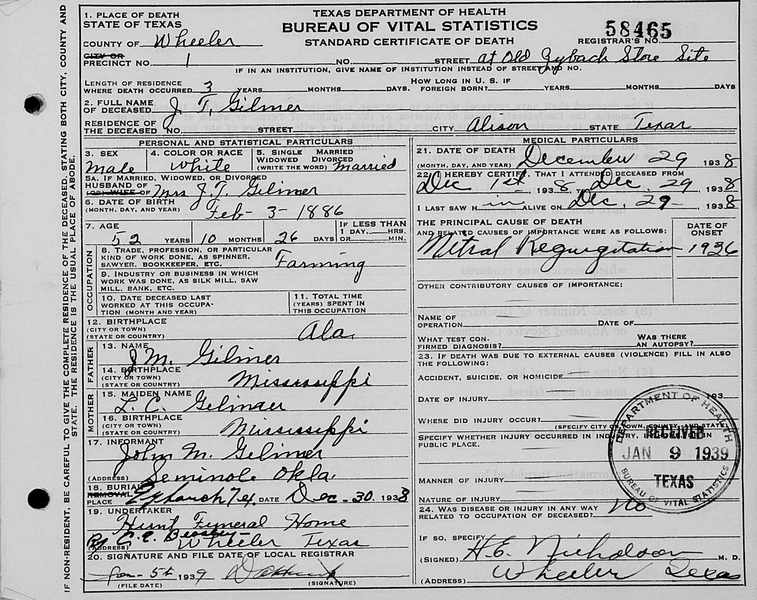 TEXAS DEPARTMENT OF HEALTH
BUREAU OF VITAL STATISTICS
STANDARD CERTIFICATE OF DEATH
58465
REGISTRAR'S NO.
1. PLACE OF DEATH
STATE OF TEXAS
COUNTY OF Wheeler
CITY OR
PRECINCT NO. 1 NO. STREET at Old Gybach Store Site
IF IN AN INSTITUTION, GIVE NAME OF INSTITUTION INSTEAD OF STREET AND NO.
LENGTH OF RESIDENCE
WHERE DEATH OCCURRED 3 YEARS MONTHS DAYS HOW LONG IN U. S. IF FOREIGN BORN? YEARS MONTHS DAYS
2. FULL NAME
OF DECEASED J. T. Gilmer
RESIDENCE OF
THE DECEASED NO. STREET CITY Alison STATE Texas
PERSONAL AND STATISTICAL PARTICULARS
3. SEX 4. COLOR OR RACE 5. SINGLE MARRIED
WIDOWED DIVORCED
(WRITE THE WORD)
male white married
5A. IF MARRIED, WIDOWED, OR DIVORCED
HUSBAND OF
(OR) WIFE OF Mrs J. T. Gilmer
6. DATE OF BIRTH
(MONTH, DAY, AND YEAR) Feb - 3 - 1886
7. AGE IF LESS THAN
52 YEARS 10 MONTHS 26 DAYS 1 DAY, HRS. OR MIN.
OCCUPATION
8. TRADE, PROFESSION, OR PARTICULAR
KIND OF WORK DONE, AS SPINNER,
SAWYER, BOOKKEEPER, ETC. Farming
9. INDUSTRY OR BUSINESS IN WHICH
WORK WAS DONE, AS SILK MILL, SAW
MILL, BANK, ETC.
10. DATE DECEASED LAST
WORKED AT THIS OCCUPA-
TION (MONTH AND YEAR)
11. TOTAL TIME
(YEARS) SPENT IN
THIS OCCUPATION
12. BIRTHPLACE
(CITY OR TOWN)
(STATE OR COUNTRY) Ala
FATHER
13. NAME J M. Gilmer
14. BIRTHPLACE
(CITY OR TOWN)
(STATE OR COUNTRY) Mississippi
MOTHER
15. MAIDEN NAME L. C.
16. BIRTHPLACE
(CITY OR TOWN)
(STATE OR COUNTRY) Mississippi
17. INFORMANT John M. Gilmer
(ADDRESS) Seminole Okla.
18. BURIAL
REMOVAL
PLACE DATE Dec - 30 1938
19. UNDERTAKER Hunt Funeral Home
(ADDRESS) Wheeler Texas
20. SIGNATURE AND FILE DATE OF LOCAL REGISTRAR
Jan - 5th 1939
(FILE DATE) (SIGNATURE)
MEDICAL PARTICULARS
21. DATE OF DEATH
(MONTH, DAY, AND YEAR) December 29 1938
22. I HEREBY CERTIFY, THAT I ATTENDED DECEASED FROM
Dec 1st 1938, Dec. 29 1938
I LAST SAW H im ALIVE ON Dec. 29 1938
THE PRINCIPAL CAUSE OF DEATH
AND RELATED CAUSES OF IMPORTANCE WERE AS FOLLOWS: DATE OF ONSET
Mitral Regurgitation 1936
OTHER CONTRIBUTORY CAUSES OF IMPORTANCE:
NAME OF
OPERATION DATE OF
WHAT TEST CON-
FIRMED DIAGNOSIS? WAS THERE
AN AUTOPSY?
23. IF DEATH WAS DUE TO EXTERNAL CAUSES (VIOLENCE) FILL IN ALSO
THE FOLLOWING:
ACCIDENT, SUICIDE, OR HOMICIDE
DATE OF INJURY 193
WHERE DID INJURY OCCUR?
(SPECIFY CITY OR TOWN, COUNTY AND STATE)
SPECIFY WHETHER INJURY OCCURRED IN
PUBLIC PLACE.
MANNER OF INJURY
NATURE OF INJURY
24. WAS DISEASE OR INJURY IN ANY WAY
RELATED TO OCCUPATION OF DECEASED? no
IF SO, SPECIFY
(SIGNED) H. E. Nicholson M. D.
(ADDRESS) Wheeler Texas
DEPARTMENT OF HEALTH
RECEIVED
JAN 9 1939
TEXAS
BUREAU OF VITAL STATISTICS
IF NON-RESIDENT, BE CAREFUL TO GIVE THE COMPLETE RESIDENCE OF THE DECEASED, STATING BOTH CITY, COUNTY AND
STATE. THE RESIDENCE IS THE USUAL PLACE OF ABODE.